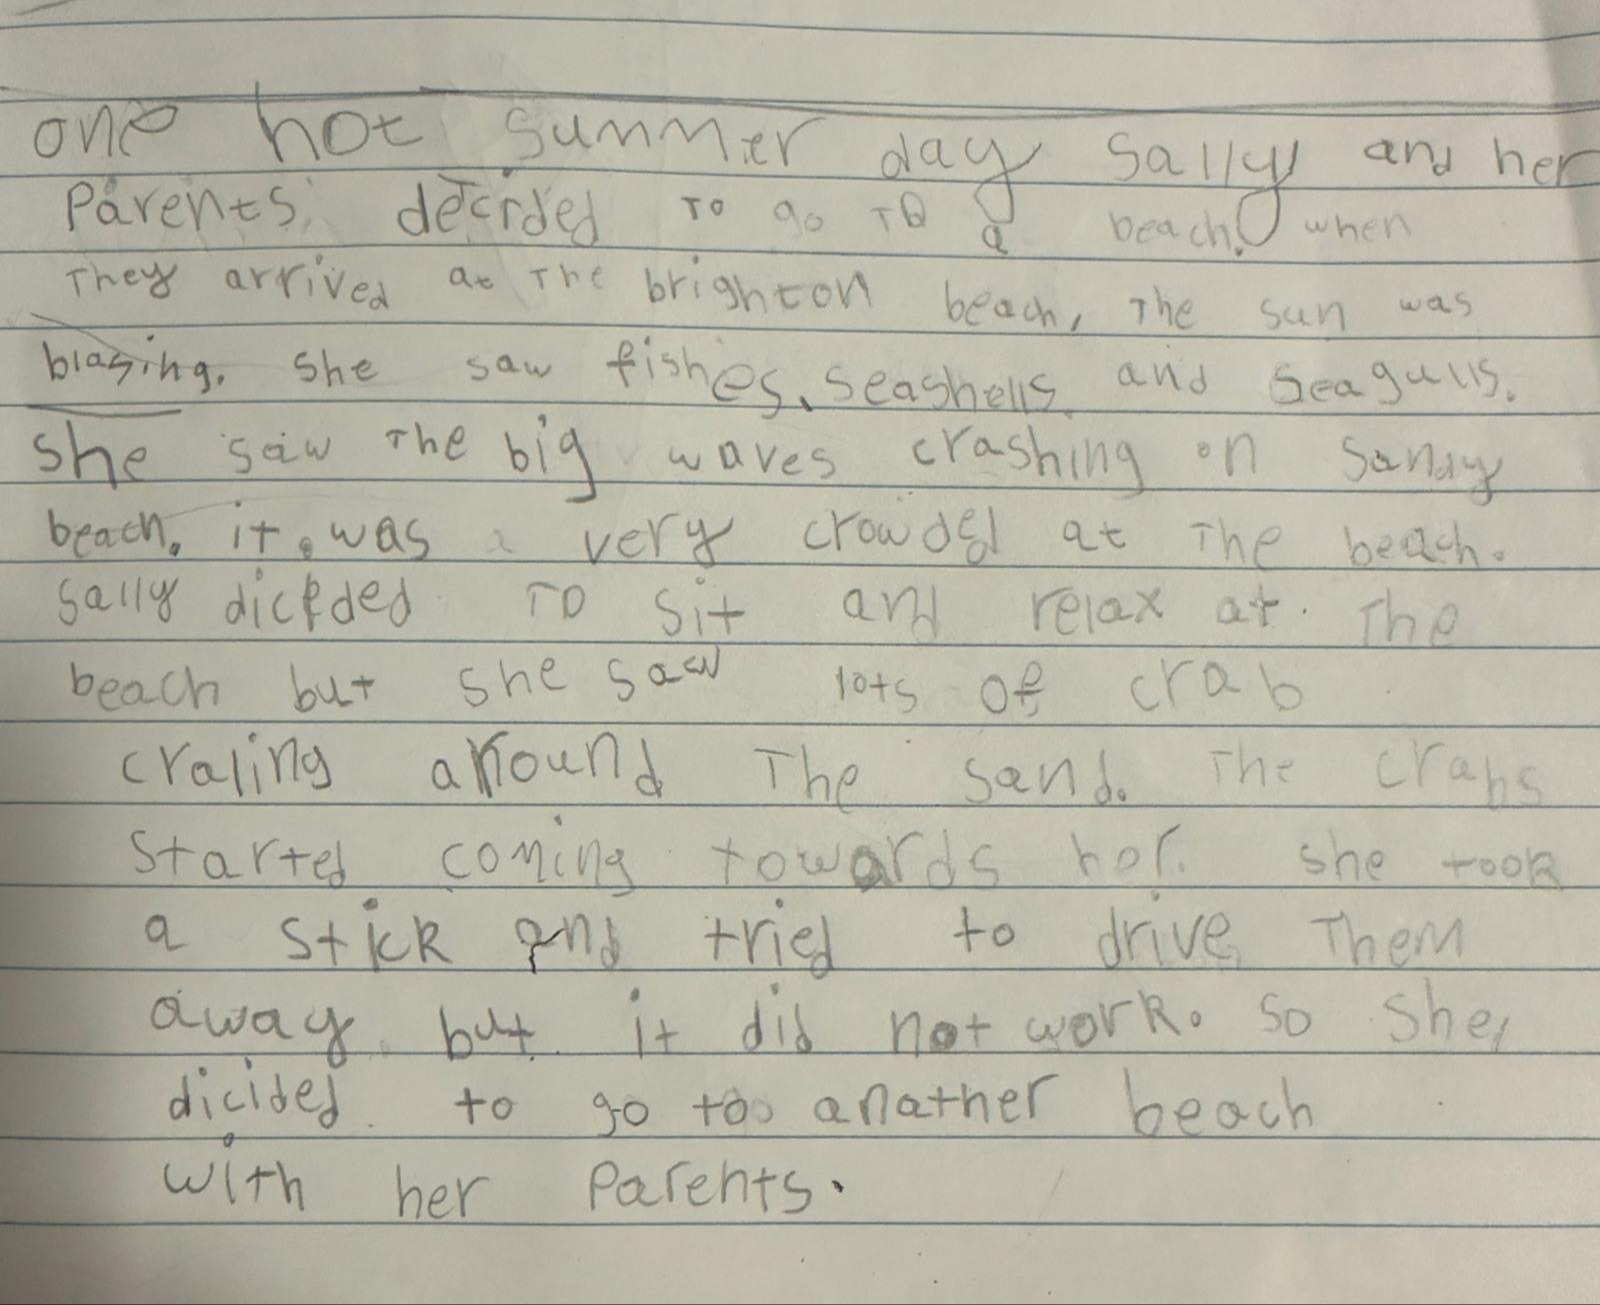 one hot summer day Sally and her
Parents decided To go To a beach. when
They arrived at The brighton beach, The sun was
blazing. She saw fishes, seashells and Seagulls.
She saw The big waves crashing on Sandy
beach. it was a very crowded at The beach.
Sally dicided To sit and relax at The
beach but she saw lots of crab
craling around The sand. The crabs
started coming towards her. She took
a stick and tried to drive Them
away but it did not work. So She,
dicided to go too anather beach
with her Parents.